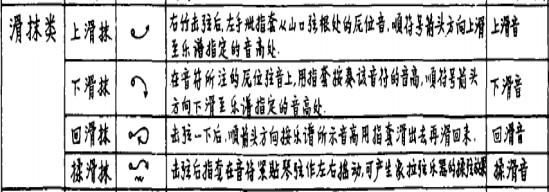 滑抹类
上滑抹
右竹击弦后,左手指套从山口弦根处的底位音,顺符号箭头方向上滑
至乐谱指定的音高处.
上滑音
下滑抹
在音符所注的底位弦音上,用指套按奏该音符的音高,顺符号箭头
方向下滑至乐谱指定的音高处.
下滑音
回滑抹
击弦一下后,顺箭头方向按乐谱所示音高用指套滑出去再滑回来.
回滑音
揉滑抹
击弦后指套在音符紧贴琴弦作左右摇动,可产生象拉弦乐器的揉弦效果
揉滑音